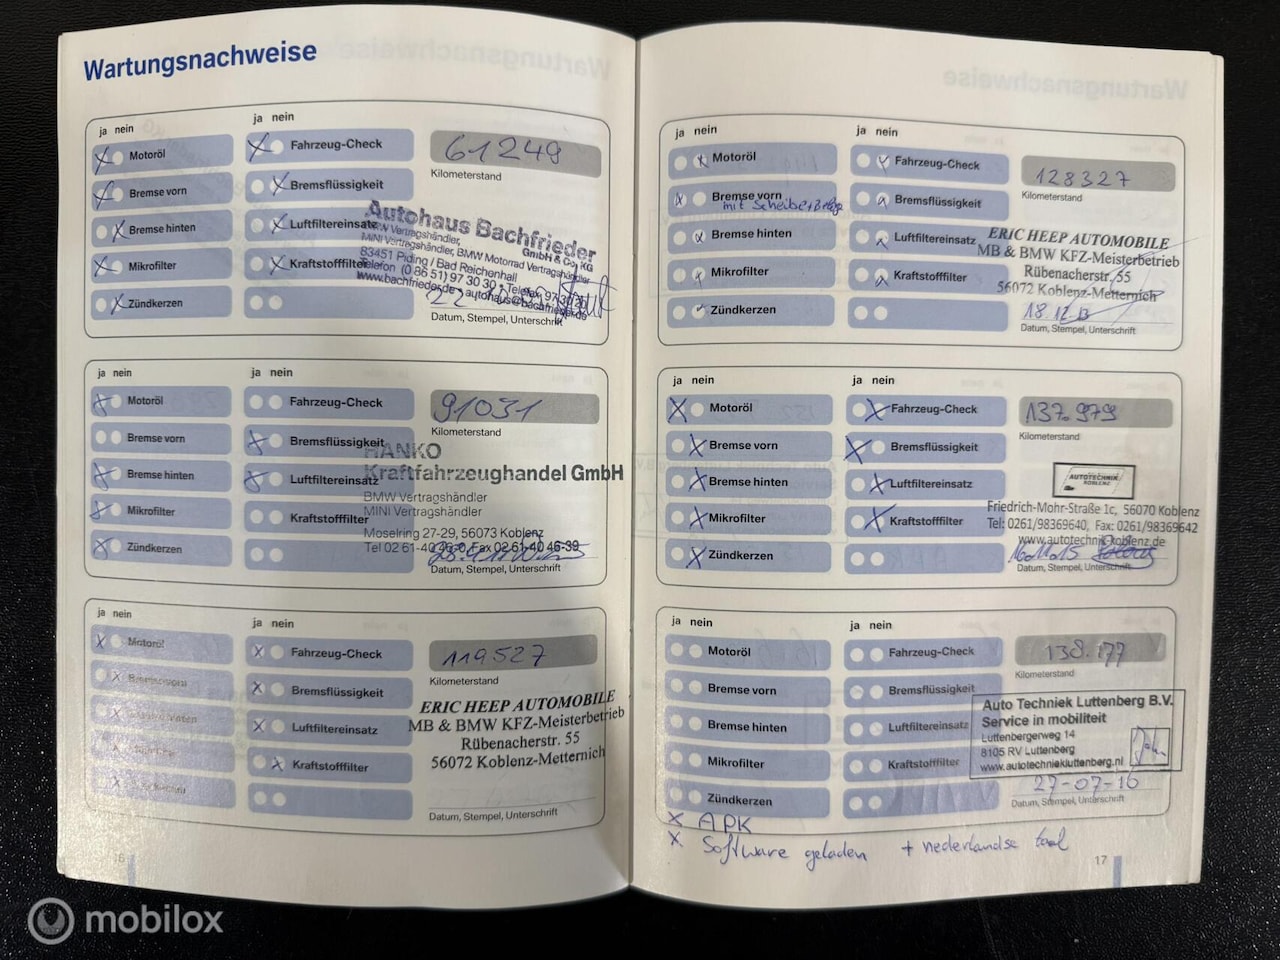 Wartungsnachweise
ja nein
ja nein
Motoröl
Fahrzeug-Check
61249
Kilometerstand
Bremse vorn
Bremsflüssigkeit
Bremse hinten
Luftfiltereinsatz
Mikrofilter
Kraftstofffilter
Zündkerzen
Autohaus Bachfrieder
GmbH & Co. KG
BMW Vertragshändler,
MINI Vertragshändler, BMW Motorrad Vertragshändler
83451 Piding / Bad Reichenhall
Telefon (0 86 51) 97 30 30 • Telefax 97 30 20
www.bachfrieder.de • autohaus@bachfrieder.de
Datum, Stempel, Unterschrift
ja nein
ja nein
Motoröl
Fahrzeug-Check
91031
Kilometerstand
Bremse vorn
Bremsflüssigkeit
Bremse hinten
Luftfiltereinsatz
Mikrofilter
Kraftstofffilter
Zündkerzen
HANKO
Kraftfahrzeughandel GmbH
BMW Vertragshändler
MINI Vertragshändler
Moselring 27-29, 56073 Koblenz
Tel 02 61-40 46-0, Fax 02 61-40 46-39
Datum, Stempel, Unterschrift
ja nein
ja nein
Motoröl
Fahrzeug-Check
119527
Kilometerstand
Bremse vorn
Bremsflüssigkeit
Bremse hinten
Luftfiltereinsatz
Mikrofilter
Kraftstofffilter
Zündkerzen
ERIC HEEP AUTOMOBILE
MB & BMW KFZ-Meisterbetrieb
Rübenacherstr. 55
56072 Koblenz-Metternich
Datum, Stempel, Unterschrift
16
ja nein
ja nein
Motoröl
Fahrzeug-Check
128327
Kilometerstand
Bremse vorn
mit Scheibe+Beläge
Bremsflüssigkeit
Bremse hinten
Luftfiltereinsatz
Mikrofilter
Kraftstofffilter
Zündkerzen
ERIC HEEP AUTOMOBILE
MB & BMW KFZ-Meisterbetrieb
Rübenacherstr. 55
56072 Koblenz-Metternich
18.12.13
Datum, Stempel, Unterschrift
ja nein
ja nein
Motoröl
Fahrzeug-Check
137.979
Kilometerstand
Bremse vorn
Bremsflüssigkeit
Bremse hinten
Luftfiltereinsatz
Mikrofilter
Kraftstofffilter
Zündkerzen
AUTOTECHNIK
KOBLENZ
Friedrich-Mohr-Straße 1c, 56070 Koblenz
Tel: 0261/98369640, Fax: 0261/98369642
www.autotechnik-koblenz.de
16.11.15
Datum, Stempel, Unterschrift
ja nein
ja nein
Motoröl
Fahrzeug-Check
138.177
Kilometerstand
Bremse vorn
Bremsflüssigkeit
Bremse hinten
Luftfiltereinsatz
Mikrofilter
Kraftstofffilter
Zündkerzen
Auto Techniek Luttenberg B.V.
Service in mobiliteit
Luttenbergerweg 14
8105 RV Luttenberg
www.autotechniekluttenberg.nl
27-07-16
Datum, Stempel, Unterschrift
x APK
x Software geladen + nederlandse taal
17
mobilox